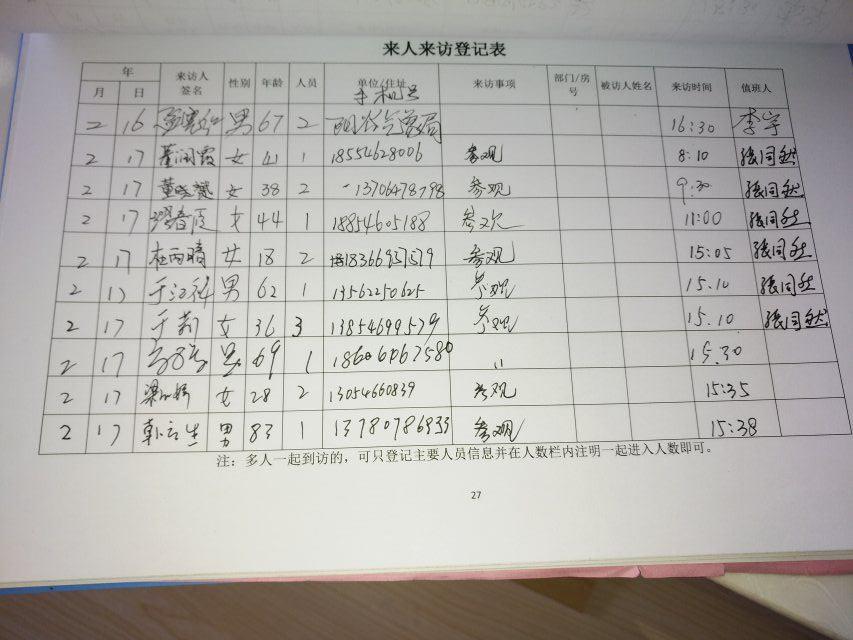 来人来访登记表
年 来访人签名 性别 年龄 人员 单位/住址 手机号 来访事项 部门/房号 被访人姓名 来访时间 值班人
月 日
2 16 男 67 2 16:30 李宇
2 17 董润霞 女 41 1 18554628006 参观 8:10 张同然
2 17 董晓赟 女 38 2 13706478798 参观 9:30 张同然
2 17 女 44 1 18854605188 参观 11:00 张同然
2 17 杜雨晴 女 18 2 18366957579 参观 15:05 张同然
2 17 于江 男 62 1 13562250625 参观 15.10 张同然
2 17 于莉 女 36 3 13854699579 参观 15.10 张同然
2 17 男 69 1 18606067580 〃 15.30
2 17 梁 女 28 2 13054660839 参观 15:35
2 17 韩云生 男 83 1 13780786833 参观 15:38
注：多人一起到访的，可只登记主要人员信息并在人数栏内注明一起进入人数即可。
27